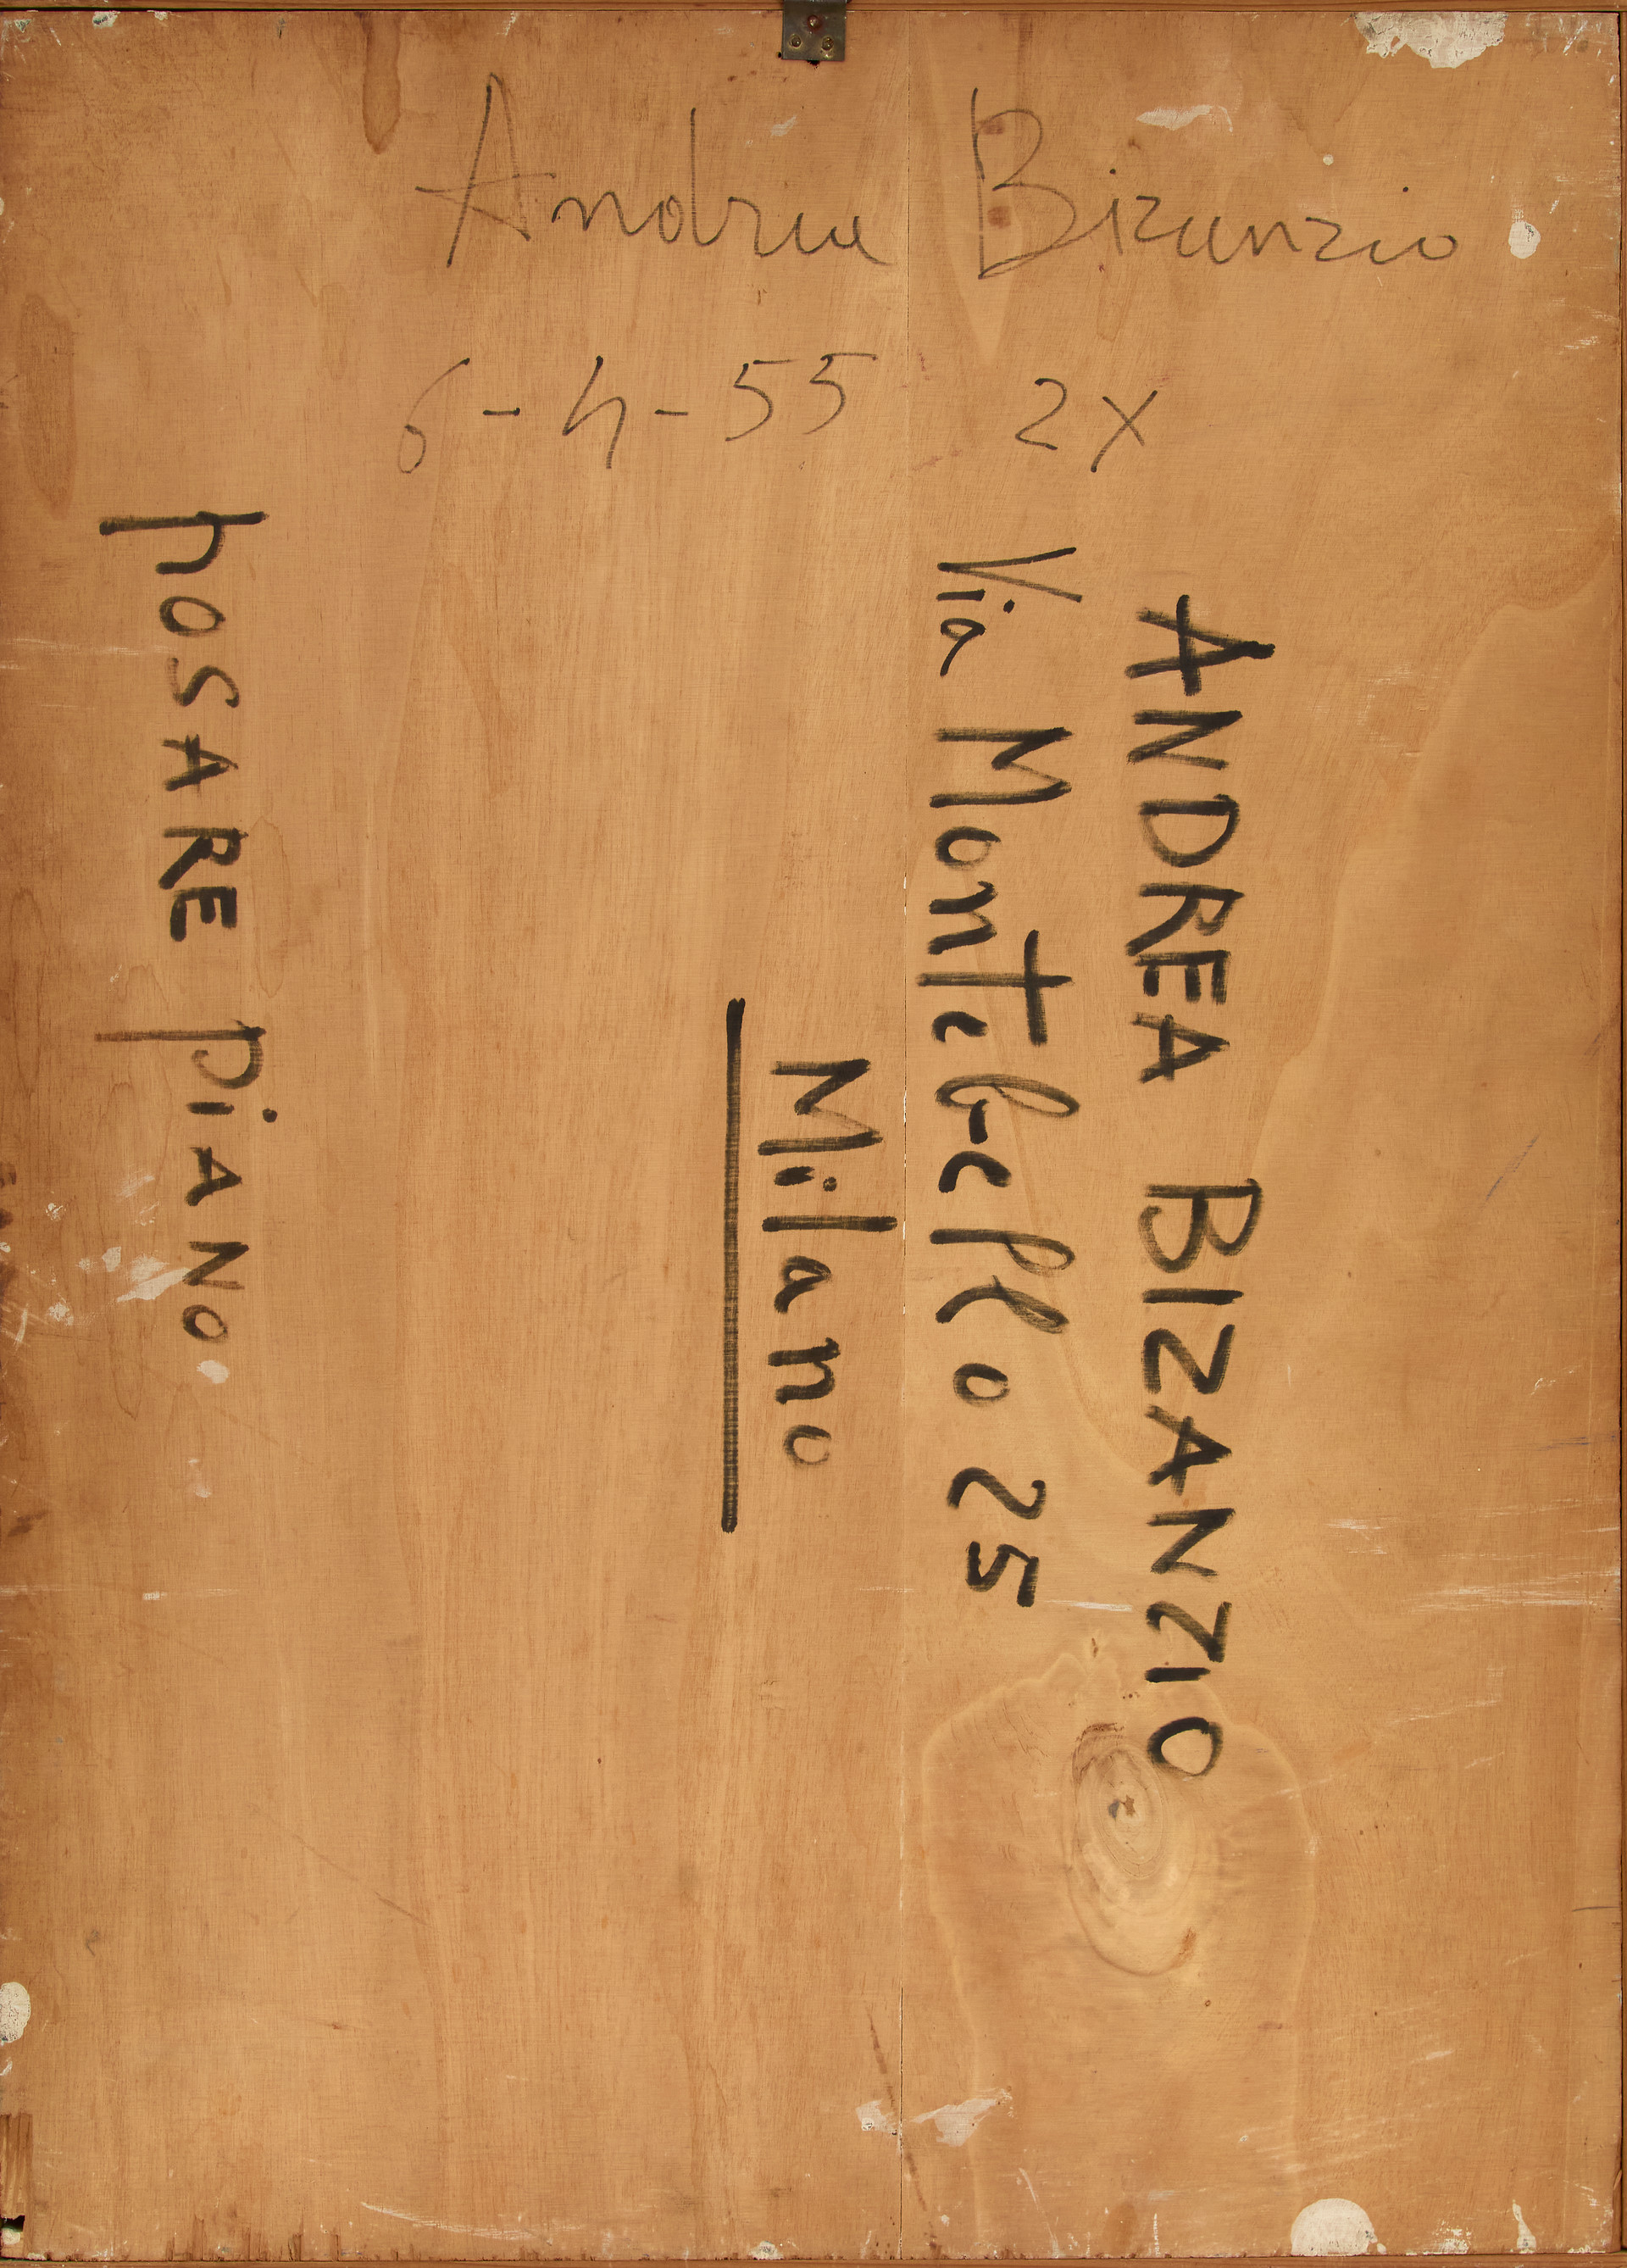 Andrea Bizanzio
6-4-55 2x
ANDREA BIZANZIO
Via Montebello 25
Milano
posare piano